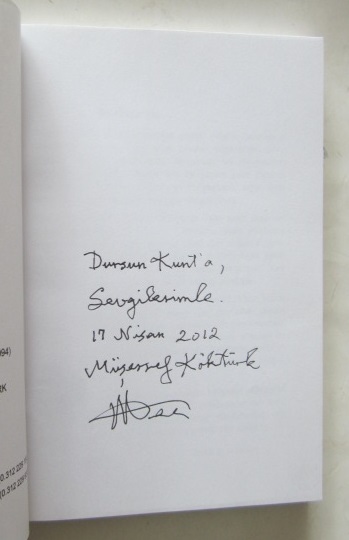 Dursun Kunt'a,
Sevgilerimle.
17 Nisan 2012
Müşerref Köktürk
994)
RK
0.312 229
0.312 229